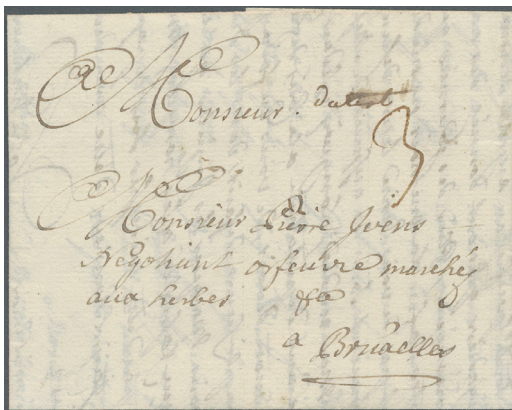 A Monsieur.
3
Monsieur Pierre Ivens
Negotiant orfeuvre marché
aux herbes &ca
a Bruxelles